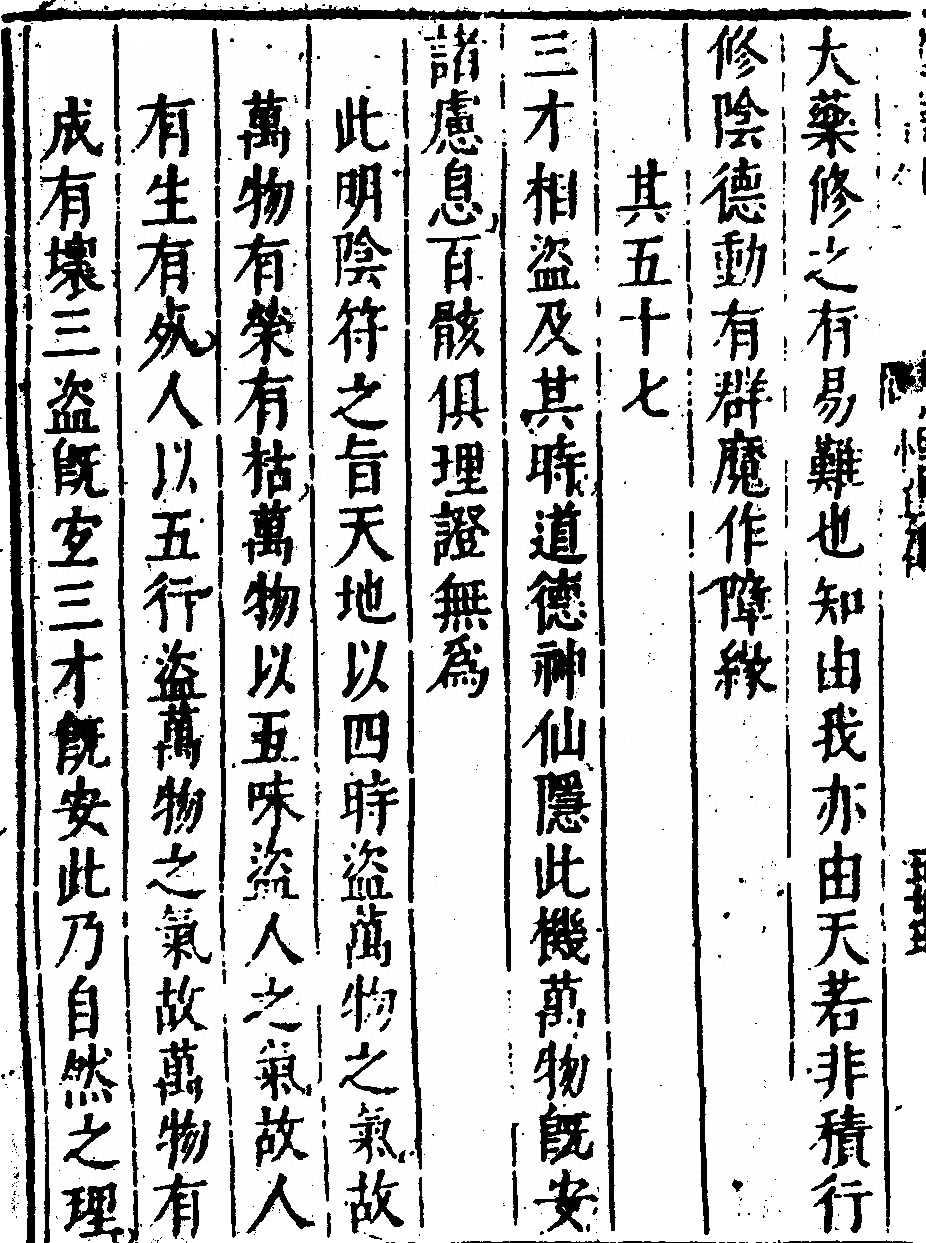 大藥修之有易難也知由我亦由天若非積行
修陰德動有群魔作障緣
其五十七
三才相盜及其時道德神仙隱此機萬物既安
諸慮息百骸俱理證無為
此明陰符之旨天地以四時盜萬物之氣故
萬物有榮有枯萬物以五味盜人之氣故人
有生有死人以五行盜萬物之氣故萬物有
成有壞三盜既宜三才既安此乃自然之理